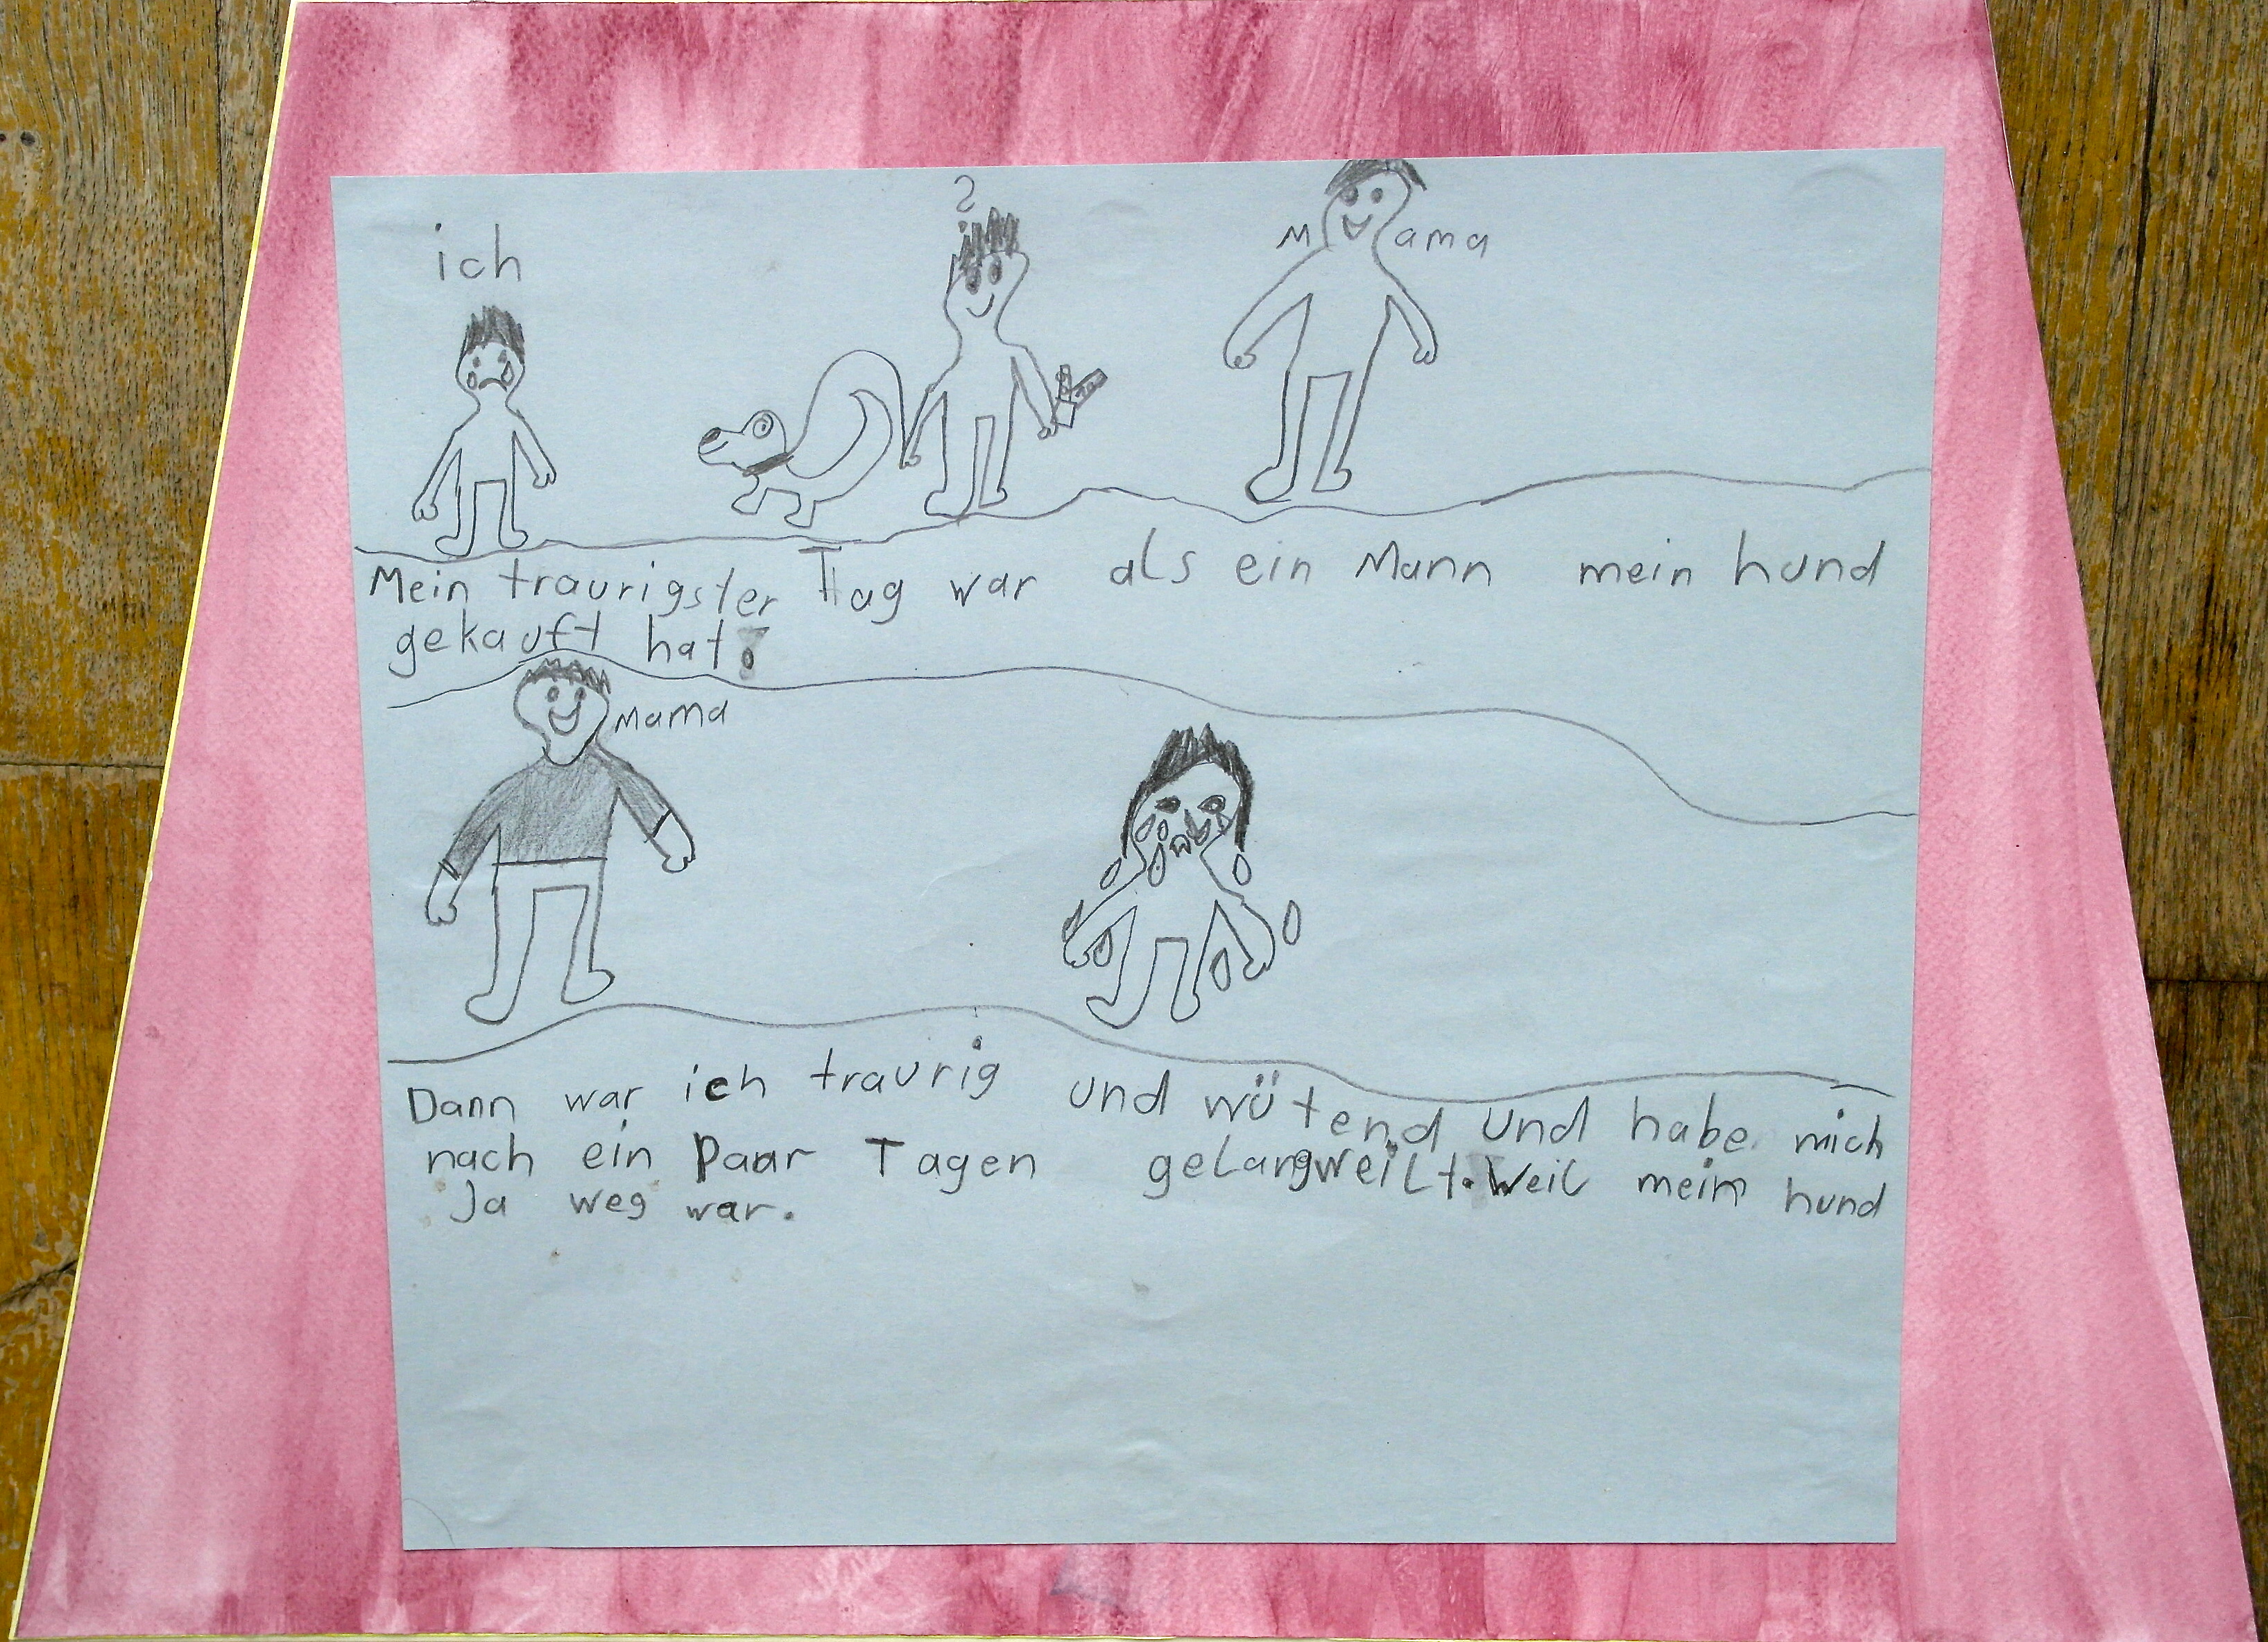 ich
?
Mama
Mein traurigster Tag war als ein Mann mein hund
gekauft hat.
Mama
Dann war ich traurig und wütend und habe mich
nach ein paar Tagen gelangweilt. Weil mein hund
Ja weg war.